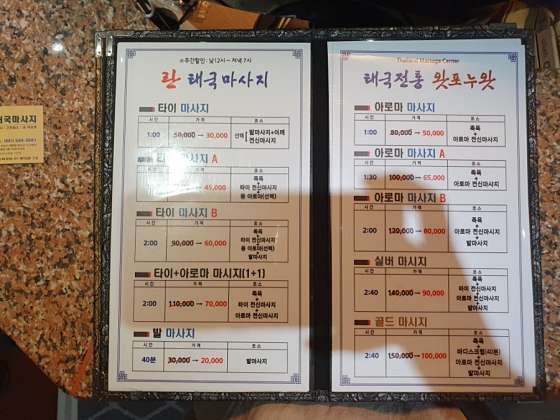 ※주간할인 : 낮12시~저녁7시
란 태국마사지
타이 마사지
시간 가격 코스
1:00 50,000 → 30,000 선택 발마사지+어깨 전신마사지
마사지 A
시간 가격 코스
45,000 족욕 + 타이 전신마사지 + 용 아로마(선택)
타이 마사지 B
시간 가격 코스
2:00 90,000 → 60,000 족욕 + 타이 전신마사지 + 용 아로마(선택) + 발마사지
타이+아로마 마시지(1+1)
시간 가격 코스
2:00 110,000 → 70,000 족욕 + 타이 전신마사지 + 아로마 전신마사지
발 마사지
시간 가격 코스
40분 30,000 → 20,000 발마사지
Thailand Massage Center
태국전통 왓포누왓
아로마 마사지
시간 가격 코스
1:00 80,000 → 50,000 족욕 + 아로마 전신마사지
아로마 마사지 A
시간 가격 코스
1:30 100,000 → 65,000 족욕 + 아로마 전신마사지
아로마 마사지 B
시간 가격 코스
2:00 120,000 → 80,000 족욕 + 아로마 전신마사지 + 발마사지
실버 마시지
시간 가격 코스
2:40 140,000 → 90,000 족욕 + 타이 전신마사지 + 아로마 전신마사지 + 발마사지
골드 마시지
시간 가격 코스
2:40 150,000 → 100,000 족욕 + 바디스크럽(40분) + 아로마 전신마사지 + 발마사지
태국마사지